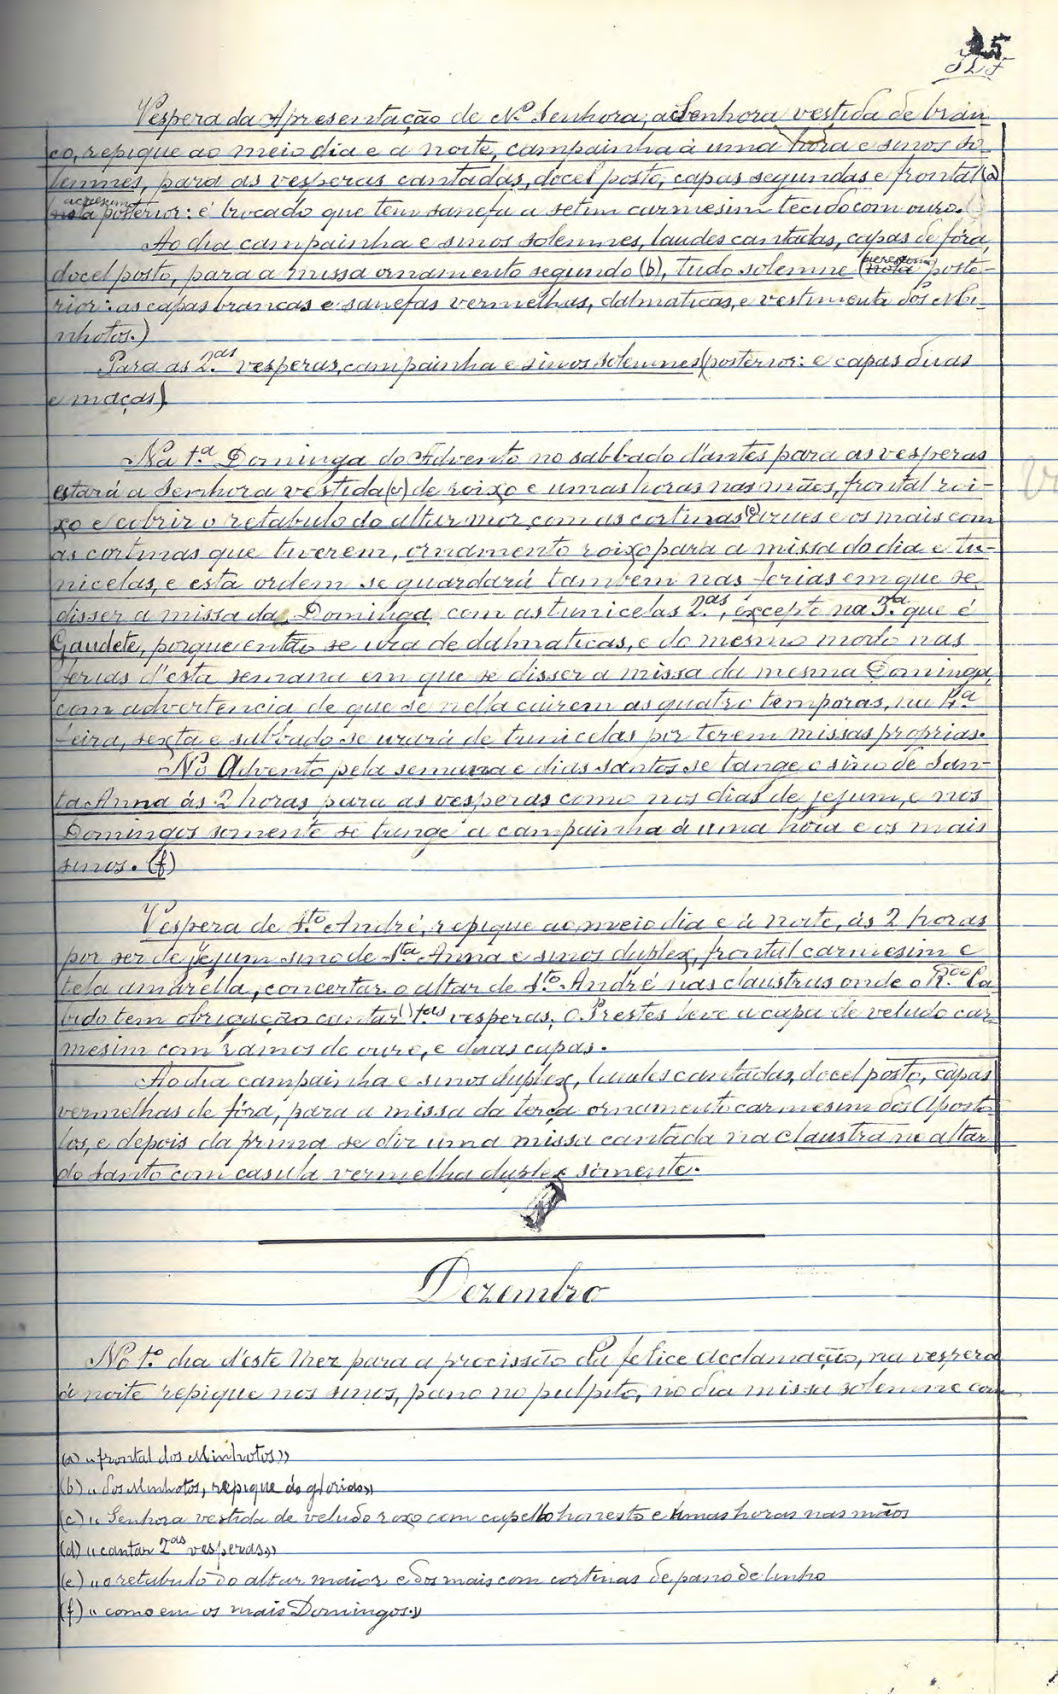 25
Vespera da Apresentação de N.ª Senhora; a Senhora vestida de bran-
co, repique ao meio dia e á noite, campainha á uma hora e sinos so-
lemnes, para as vesperas cantadas, docel posto, capas segundas e frontal (a)
posterior: é brocado que tem sanefa a setim carmesim tecido com ouro.
Ao dia campainha e sinos solemnes, laudes cantadas, capas de fóra,
docel posto, para a missa ornamento segundo (b), tudo solemne (nota poste-
rior: as capas brancas e sanefas vermelhas, dalmaticas, e vestimenta dos Mi-
nhotos.)
Para as 2.as vesperas, campainha e sinos solemnes (posterior: e capas duas
e maças)
Na 1.ª Dominga do Advento no sabbado d'antes para as vesperas
estará a Senhora vestida (c) de roixo e umas horas nas mãos, frontal roi-
xo e cobrir o retabulo do altar mór com as cortinas (e) azues e os mais com
as cortinas que tiverem, ornamento roixo para a missa do dia e tu-
nicelas, e esta ordem se guardará tambem nas ferias em que se
disser a missa da Dominga com as tunicelas 2.as, excepto na 3.ª que é
Gaudete, porque então se usa de dalmaticas, e do mesmo modo nas
ferias d'esta semana em que se disser a missa da mesma Dominga,
com advertencia de que se n'ella cairem as quatro temporas, na 4.ª
feira, sexta e sabbado se usará de tunicelas por terem missas proprias.
No Advento pela semana e dias santos se tange o sino de San-
ta Anna ás 2 horas para as vesperas como nos dias de jejum, e nos
Domingos somente se tange a campainha á uma hora e os mais
sinos. (f)
Vespera de S.to André, repique ao meio dia e á noite, ás 2 horas
por ser de jejum sino de S.ta Anna e sinos duplex, frontal carmesim e
tela amarella, concertar o altar de S.to André nas claustras onde o R.do Ca-
bido tem obrigação cantar 1.as vesperas, o Prestes leve a capa de veludo car-
mesim com ramos de ouro, e duas capas.
Ao dia campainha e sinos duplex, laudes cantadas, docel posto, capas
vermelhas de fóra, para a missa da terça ornamento carmesim dos Aposto-
los, e depois da prima se diz uma missa cantada na claustra no altar
do Santo com casula vermelha duplex sómente.
Dezembro
No 1.º dia d'este mez para a procissão da felice Acclamação, na vespera
á noite repique nos sinos, pano no pulpito, no dia missa solemne com
(a) «frontal dos Minhotos»
(b) «dos Minhotos, repique ás glorias»
(c) «Senhora vestida de veludo roxo com capello honesto e umas horas nas mãos
(d) «cantar 2.as vesperas»
(e) «o retabulo do altar maior e dos mais com cortinas de pano de linho
(f) «como em os mais Domingos.»